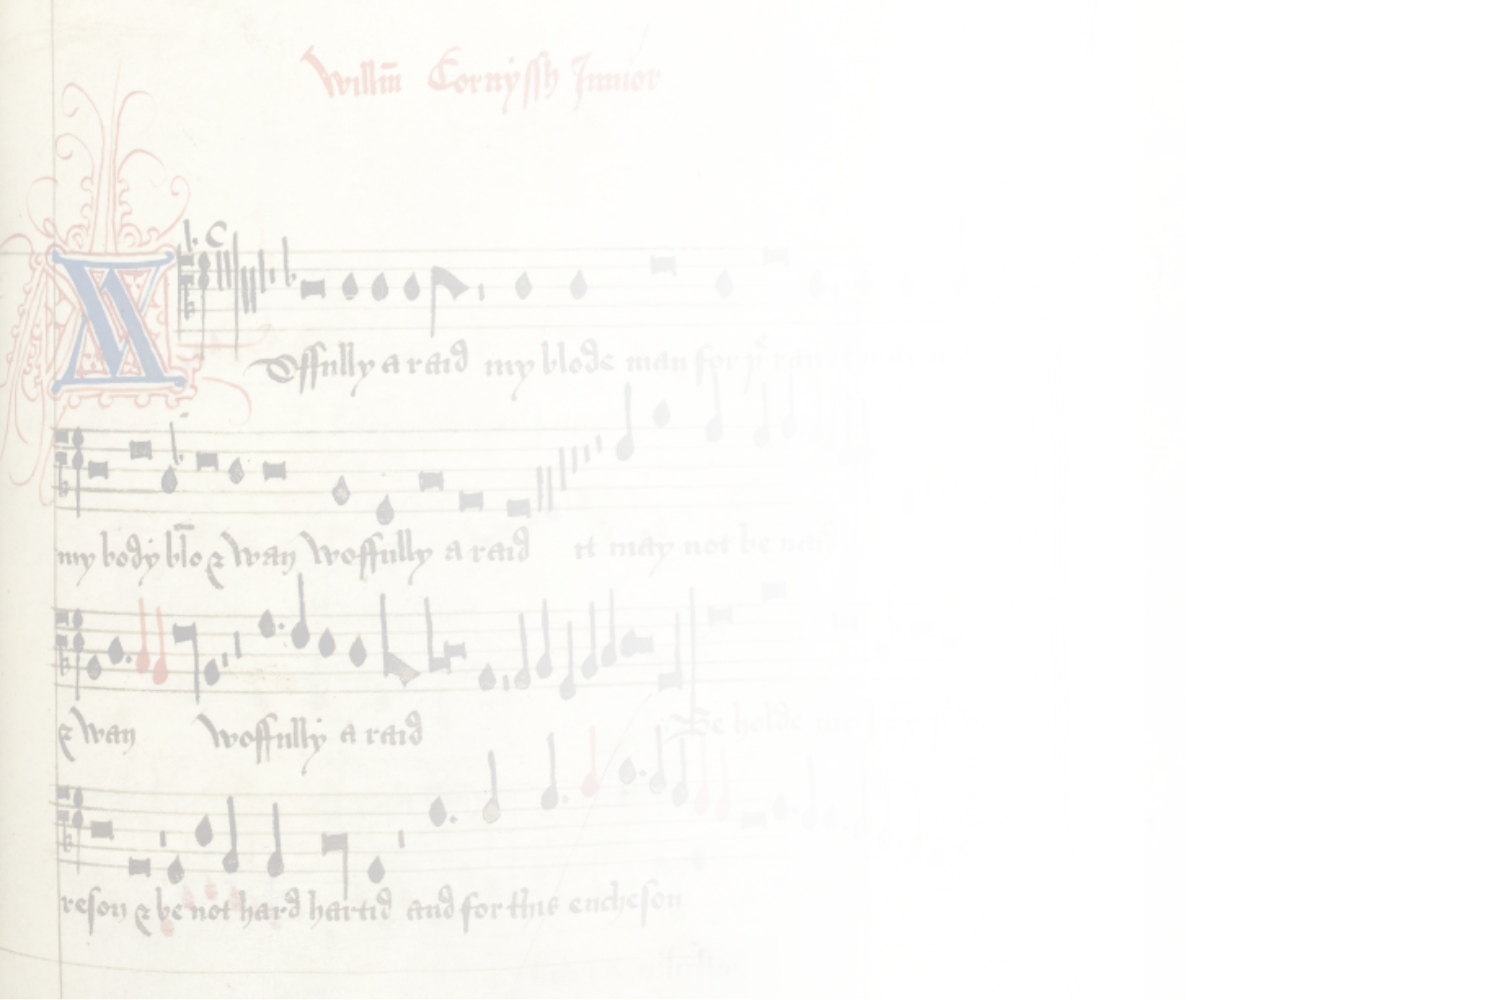 Willm̄ Cornyssh Junior
Woffully araid my blode man for yͤ ran
my body blo & wan Woffully araid it may not be naid
& wan Woffully araid Be holde me
reson & be not hard hartid and for this encheson